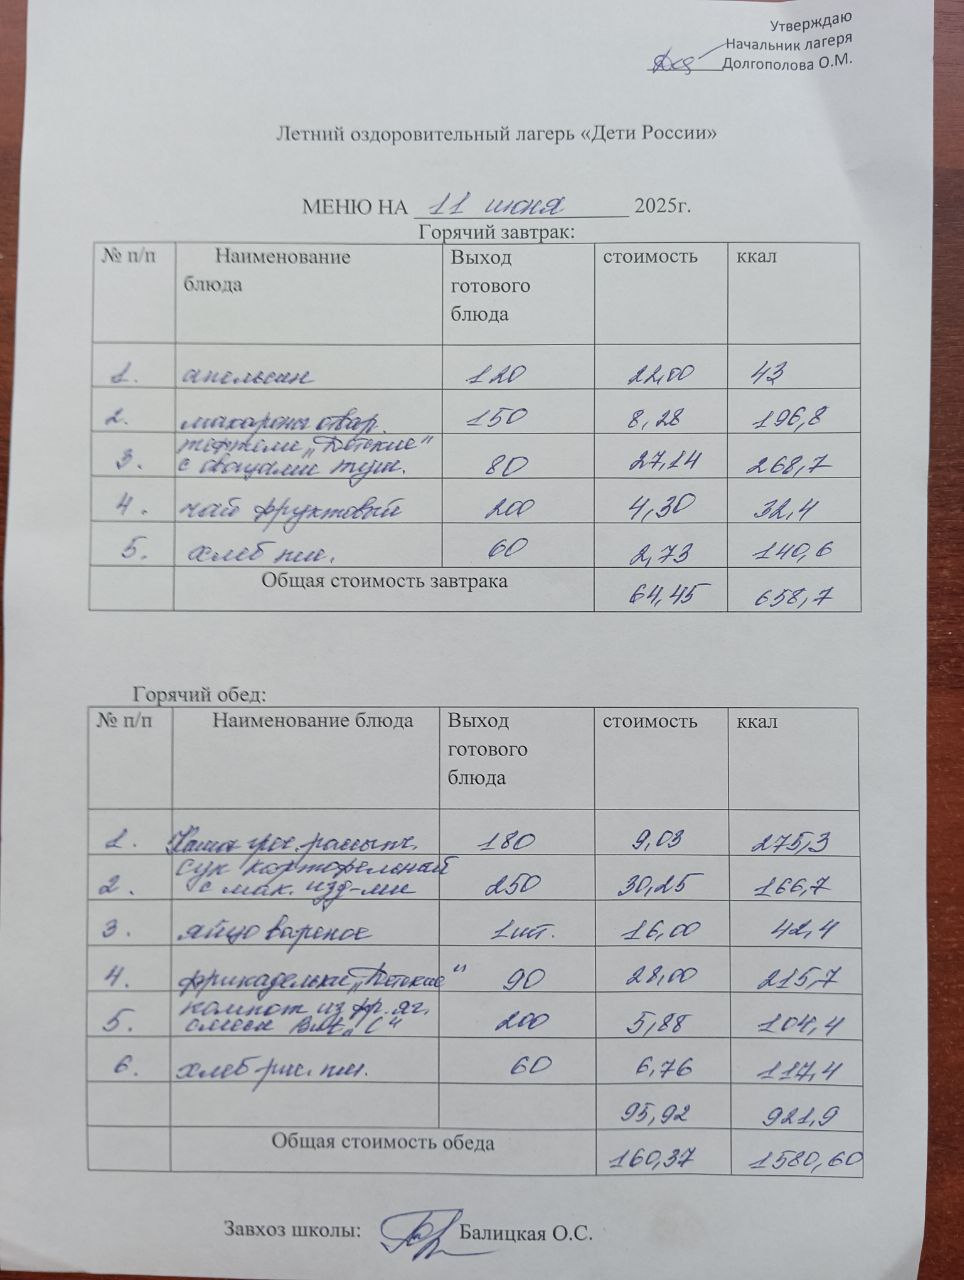 Утверждаю
Начальник лагеря
Долгополова О.М.
Летний оздоровительный лагерь «Дети России»
МЕНЮ НА 11 июня 2025г.
Горячий завтрак:
№ п/п Наименование блюда Выход готового блюда стоимость ккал
1. апельсин 120 22,00 43
2. макароны отвар. 150 8,28 196,8
3. тефтели „Детские" с овощами туш. 80 27,14 268,7
4. чай фруктовый 200 4,30 32,4
5. хлеб пш. 60 2,73 140,6
Общая стоимость завтрака 64,45 658,7
Горячий обед:
№ п/п Наименование блюда Выход готового блюда стоимость ккал
1. Каша греч. рассыпч. 180 9,03 275,3
2. суп картофельный с мак. изд-ми 250 30,25 166,7
3. яйцо вареное 1шт. 16,00 42,4
4. фрикадельки „Детские" 90 28,00 215,7
5. компот из фр. яг. смеси Вит „С" 200 5,88 104,4
6. хлеб рж. пш. 60 6,76 117,4
95,92 921,9
Общая стоимость обеда 160,37 1580,60
Завхоз школы: Балицкая О.С.